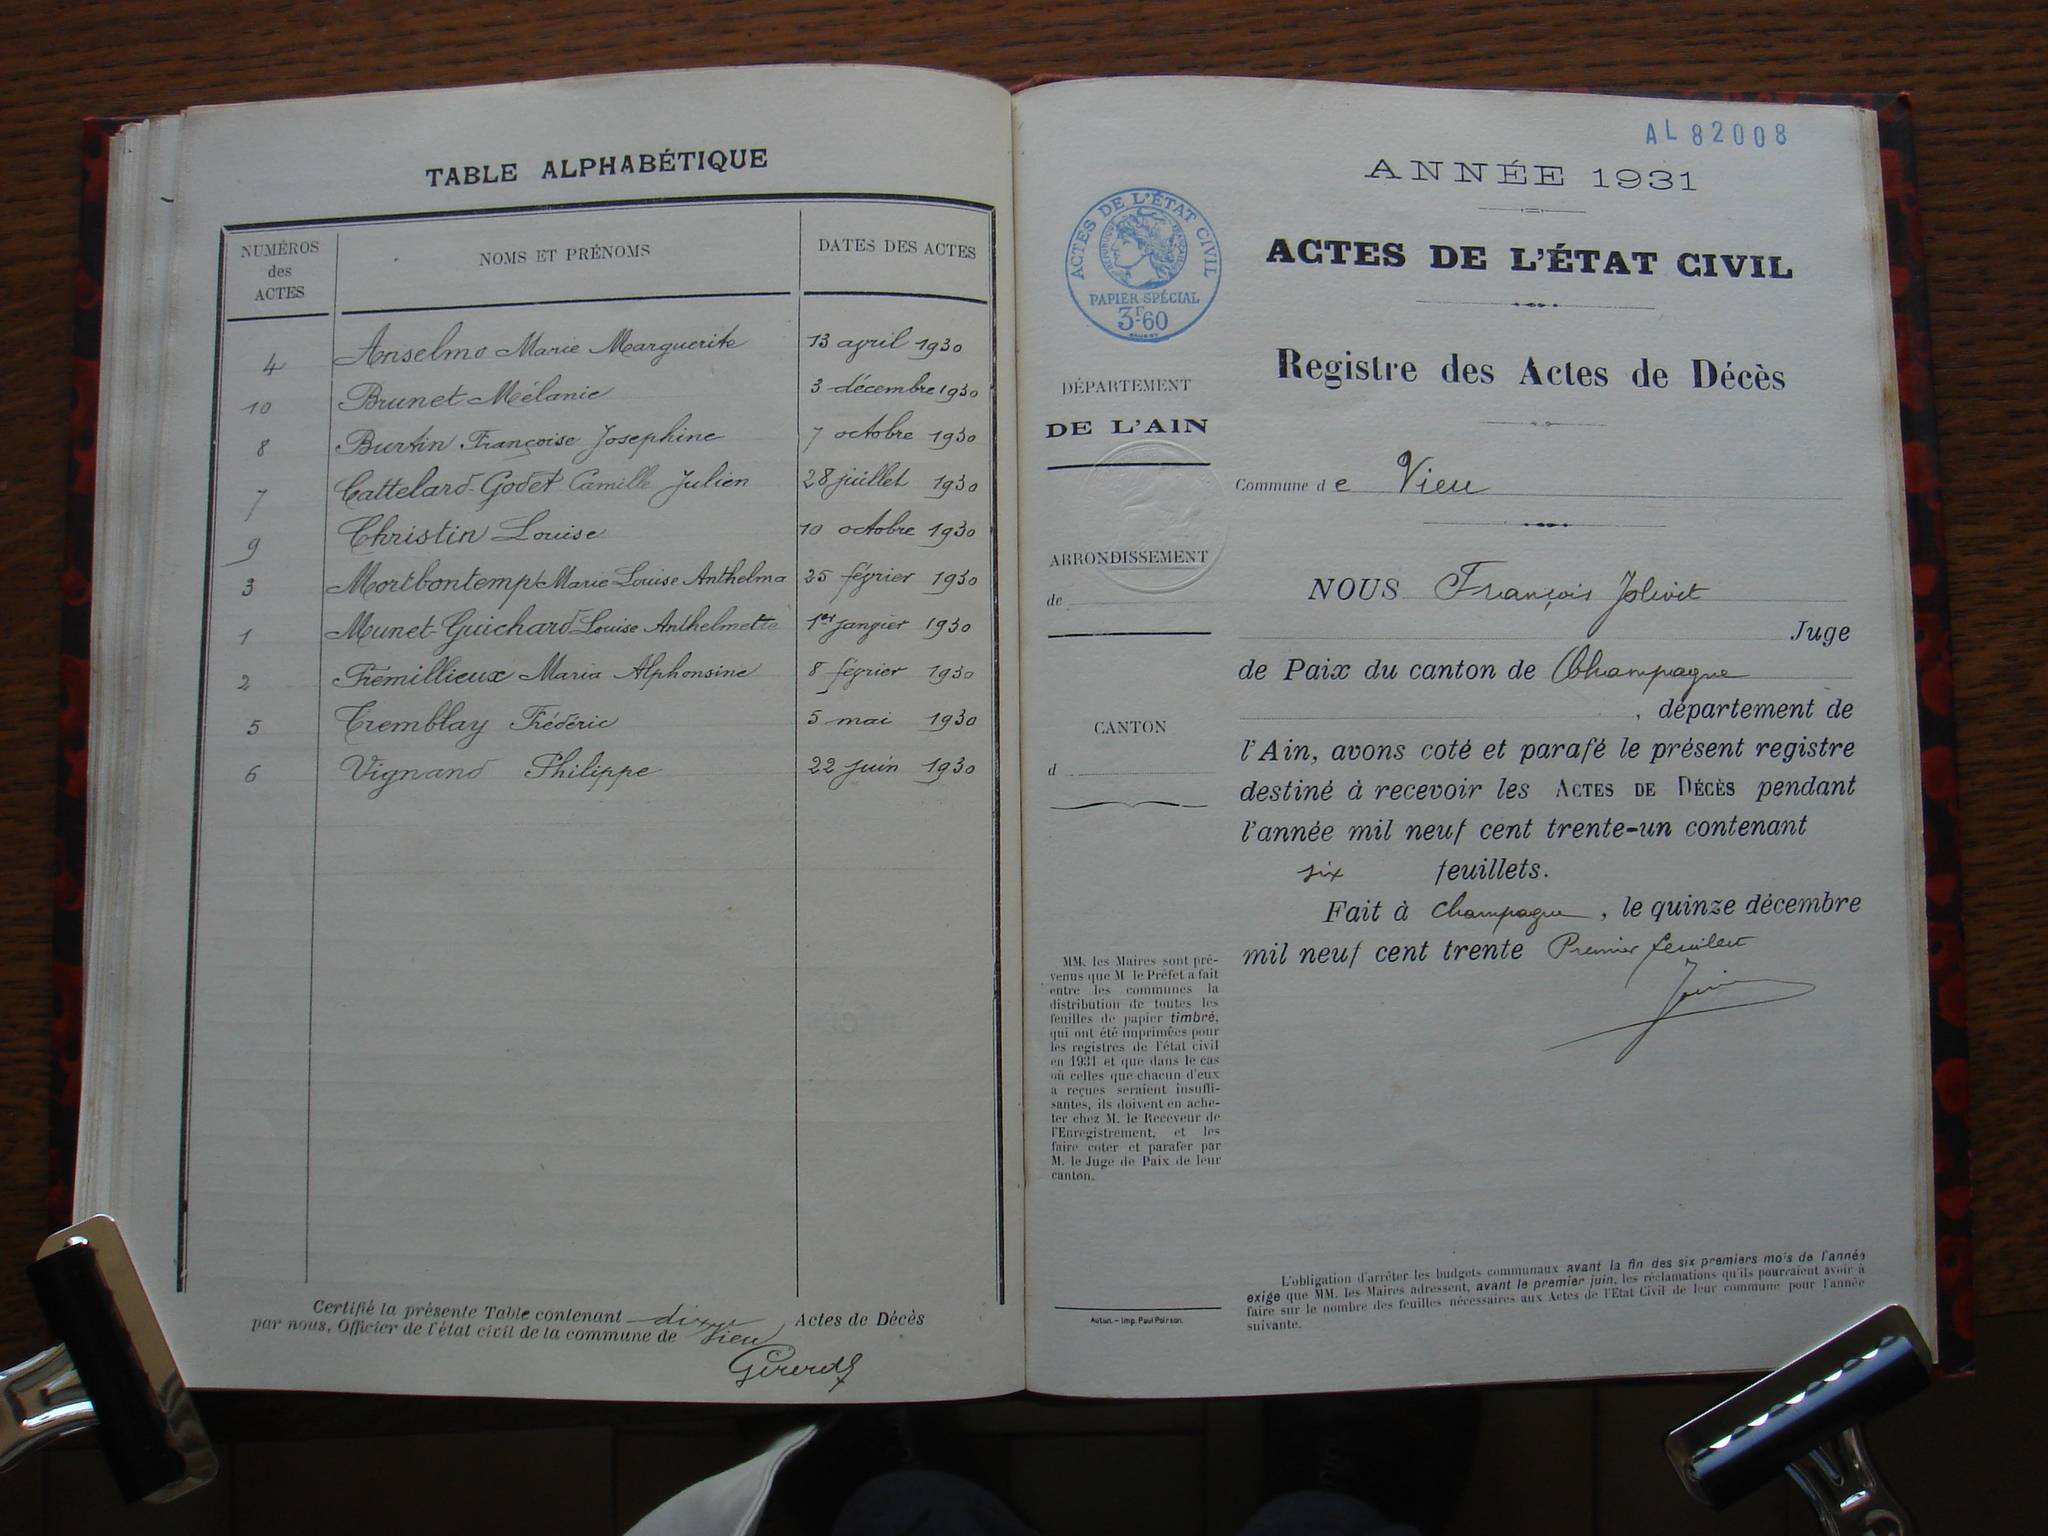 TABLE ALPHABÉTIQUE
NUMÉROS des ACTES
NOMS ET PRÉNOMS
DATES DES ACTES
4 Anselmo Marie Marguerite 13 avril 1930
10 Brunet Mélanie 3 décembre 1930
8 Burtin Françoise Josephine 7 octobre 1930
7 Cattelard-Godet Camille Julien 28 juillet 1930
9 Christin Louise 10 octobre 1930
3 Mortbontemps Marie Louise Anthelma 25 février 1930
1 Munet-Guichard Louise Anthelmette 1er janvier 1930
2 Tremillieux Maria Alphonsine 8 février 1930
5 Tremblay Frédéric 5 mai 1930
6 Vignand Philippe 22 juin 1930
Certifié la présente Table contenant dix Actes de Décès
par nous, Officier de l'état civil de la commune de Vieu
AL 82008
ANNÉE 1931
ACTES DE L'ÉTAT CIVIL
PAPIER SPÉCIAL
3F-60
ACTES DE L'ÉTAT CIVIL
Registre des Actes de Décès
DÉPARTEMENT
DE L'AIN
Commune de Vieu
ARRONDISSEMENT
de
CANTON
d
NOUS François Jolivet
Juge
de Paix du canton de Champagne
, département de
l'Ain, avons coté et parafé le présent registre
destiné à recevoir les ACTES DE DÉCÈS pendant
l'année mil neuf cent trente-un contenant
six feuillets.
Fait à Champagne, le quinze décembre
mil neuf cent trente Premier feuillet
MM. les Maires sont pré-
venus que M le Préfet a fait
entre les communes la
distribution de toutes les
feuilles de papier timbré,
qui ont été imprimées pour
les registres de l'état civil
en 1931 et que dans le cas
où celles que chacun d'eux
a reçues seraient insuffi-
santes, ils doivent en ache-
ter chez M. le Receveur de
l'Enregistrement, et les
faire coter et parafer par
M. le Juge de Paix de leur
canton.
Autun. – Imp. Paul Poirson.
L'obligation d'arrêter les budgets communaux avant la fin des six premiers mois de l'année
exige que MM. les Maires adressent, avant le premier juin, les réclamations qu'ils pourraient avoir à
faire sur le nombre des feuilles nécessaires aux Actes de l'Etat Civil de leur commune pour l'année
suivante.